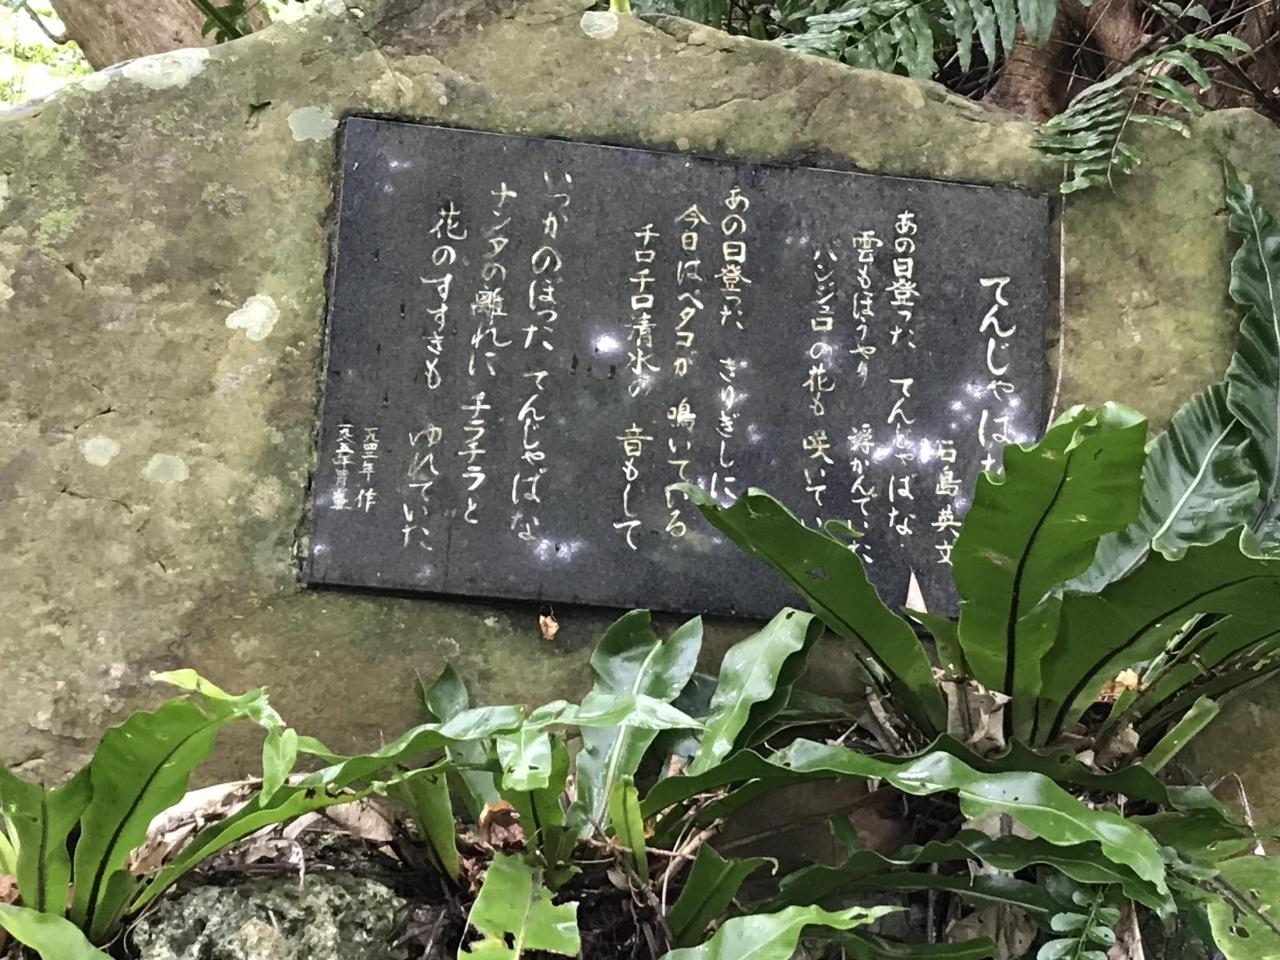 てんじゃばな
石島 英文
あの日登った てんじゃばな
雲もほうやり 浮かんでいた
バンジュロの花も 咲いてい
あの日登った きゅぎしに
今日はペタコが 鳴いている
チロチロ清水の 音もして
いつかのぼった てんじゃばな
ナンタの離れに チラチラと
花のすすきも ゆれていた
一九四二年 作
一九八五年